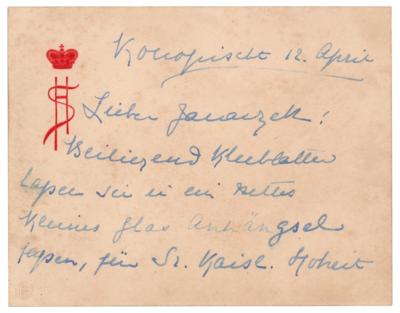 Konopischt 12. April
Lieber Janaczek!
Beiliegend Kleeblatter
lassen sie in ein nettes
kleines Glas Anhängsel
fassen, für Sr. Kaisl. Hoheit